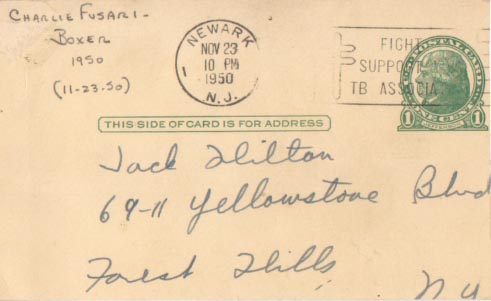 CHARLIE FUSARI-
BOXER
1950
(11-23-50)
NEWARK
NOV 23
10 PM
1950
N.J.
1
FIGHT
SUPPORT
TB ASSOCIA
1 1
THIS SIDE OF CARD IS FOR ADDRESS
Jack Hilton
69-11 Yellowstone Blvd
Forest Hills
N.Y.